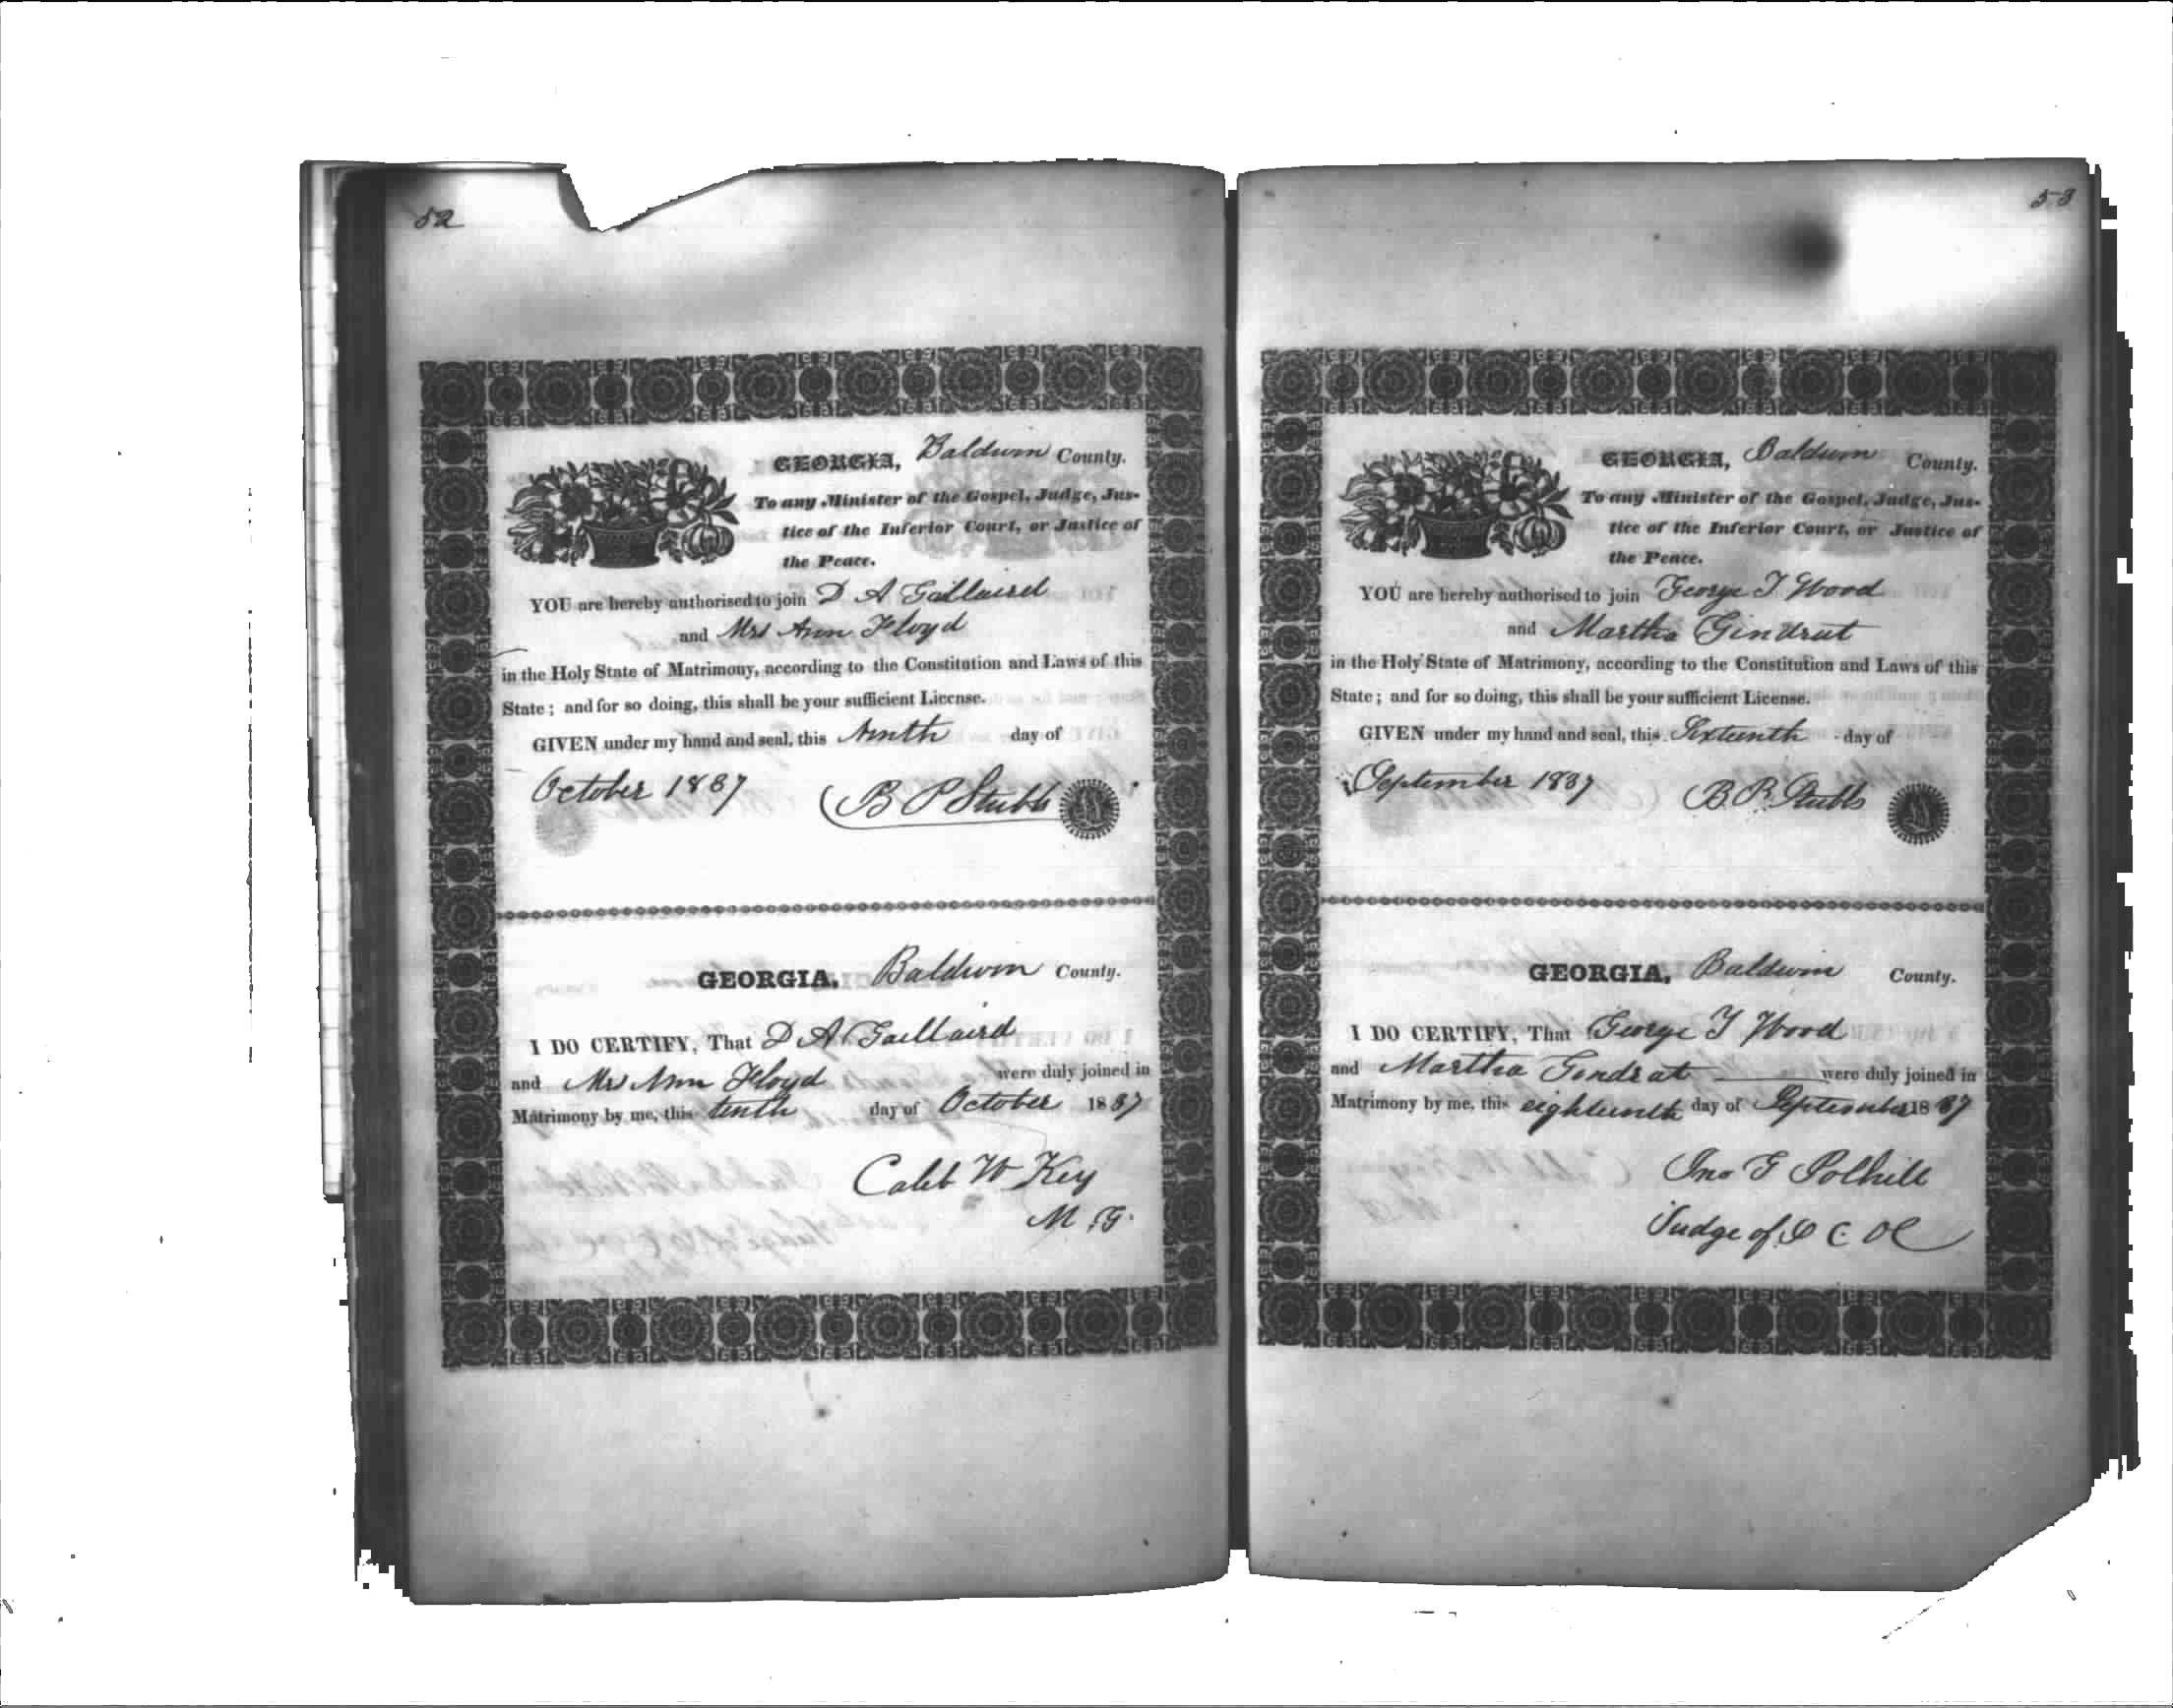 52
GEORGIA, Baldwin County.
To any Minister of the Gospel, Judge, Jus-
tice of the Inferior Court, or Justice of
the Peace.
YOU are hereby authorised to join D A Gaillaird
and Mrs Ann Floyd
in the Holy State of Matrimony, according to the Constitution and Laws of this
State; and for so doing, this shall be your sufficient License.
GIVEN under my hand and seal, this Ninth day of
October 1837 B P Stubbs
GEORGIA, Baldwin County.
I DO CERTIFY, That D A Gaillaird
and Mrs Ann Floyd were duly joined in
Matrimony by me, this tenth day of October 1837
Caleb W Key
M. G.
53
GEORGIA, Baldwin County.
To any Minister of the Gospel, Judge, Jus-
tice of the Inferior Court, or Justice of
the Peace.
YOU are hereby authorised to join George T Wood
and Martha Gindrat
in the Holy State of Matrimony, according to the Constitution and Laws of this
State; and for so doing, this shall be your sufficient License.
GIVEN under my hand and seal, this Sixteenth day of
September 1837 B. P. Stubbs
GEORGIA, Baldwin County.
I DO CERTIFY, That George T Wood
and Martha Gindrat were duly joined in
Matrimony by me, this eighteenth day of September 1837
Jno G Polhill
Judge of S C O C